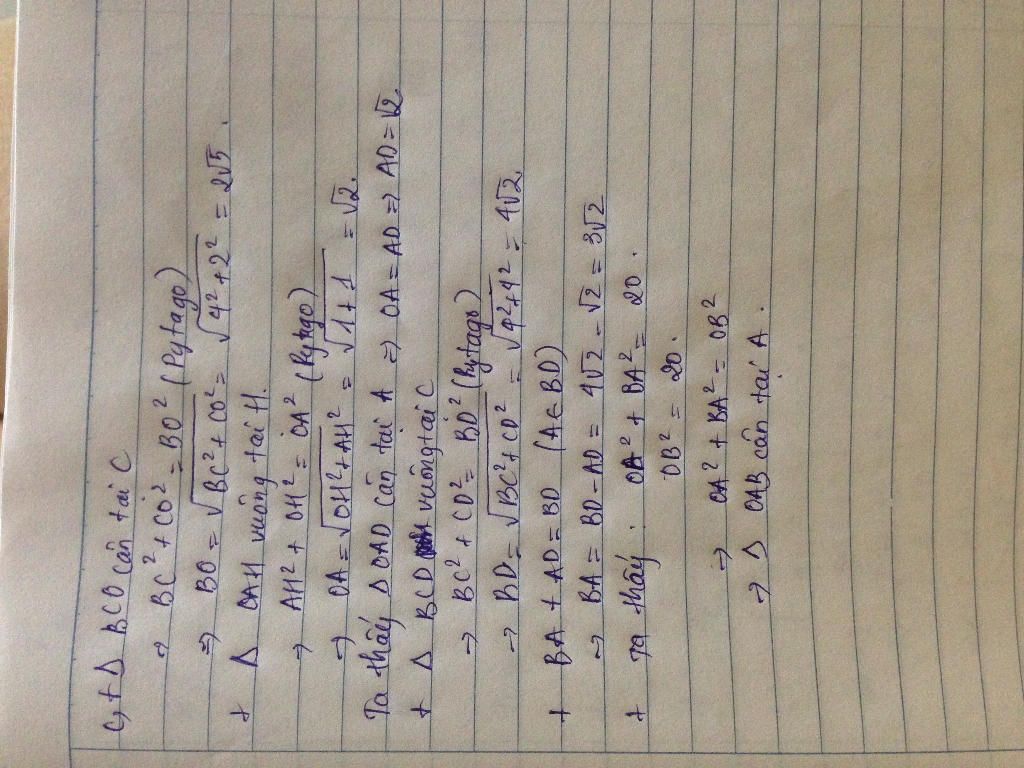 c, + Δ BCO cân tại C
→ BC² + CO² = BO² (Pytago)
⇒ BO = √BC² + CO² = √4² + 2² = 2√5.
+ Δ OAH vuông tại H.
→ AH² + OH² = OA² (Pytago)
→ OA = √OH² + AH² = √1 + 1 = √2.
Ta thấy Δ OAD cân tại A ⇒ OA = AD ⇒ AD = √2.
+ Δ BCD vuông tại C
→ BC² + CD² = BD² (Pytago)
→ BD = √BC² + CD² = √4² + 4² = 4√2.
+ BA + AD = BD (A ∈ BD)
→ BA = BD - AD = 4√2 - √2 = 3√2
+ Ta thấy: OA² + BA² = 20.
OB² = 20.
→ OA² + BA² = OB²
→ Δ OAB cân tại A.